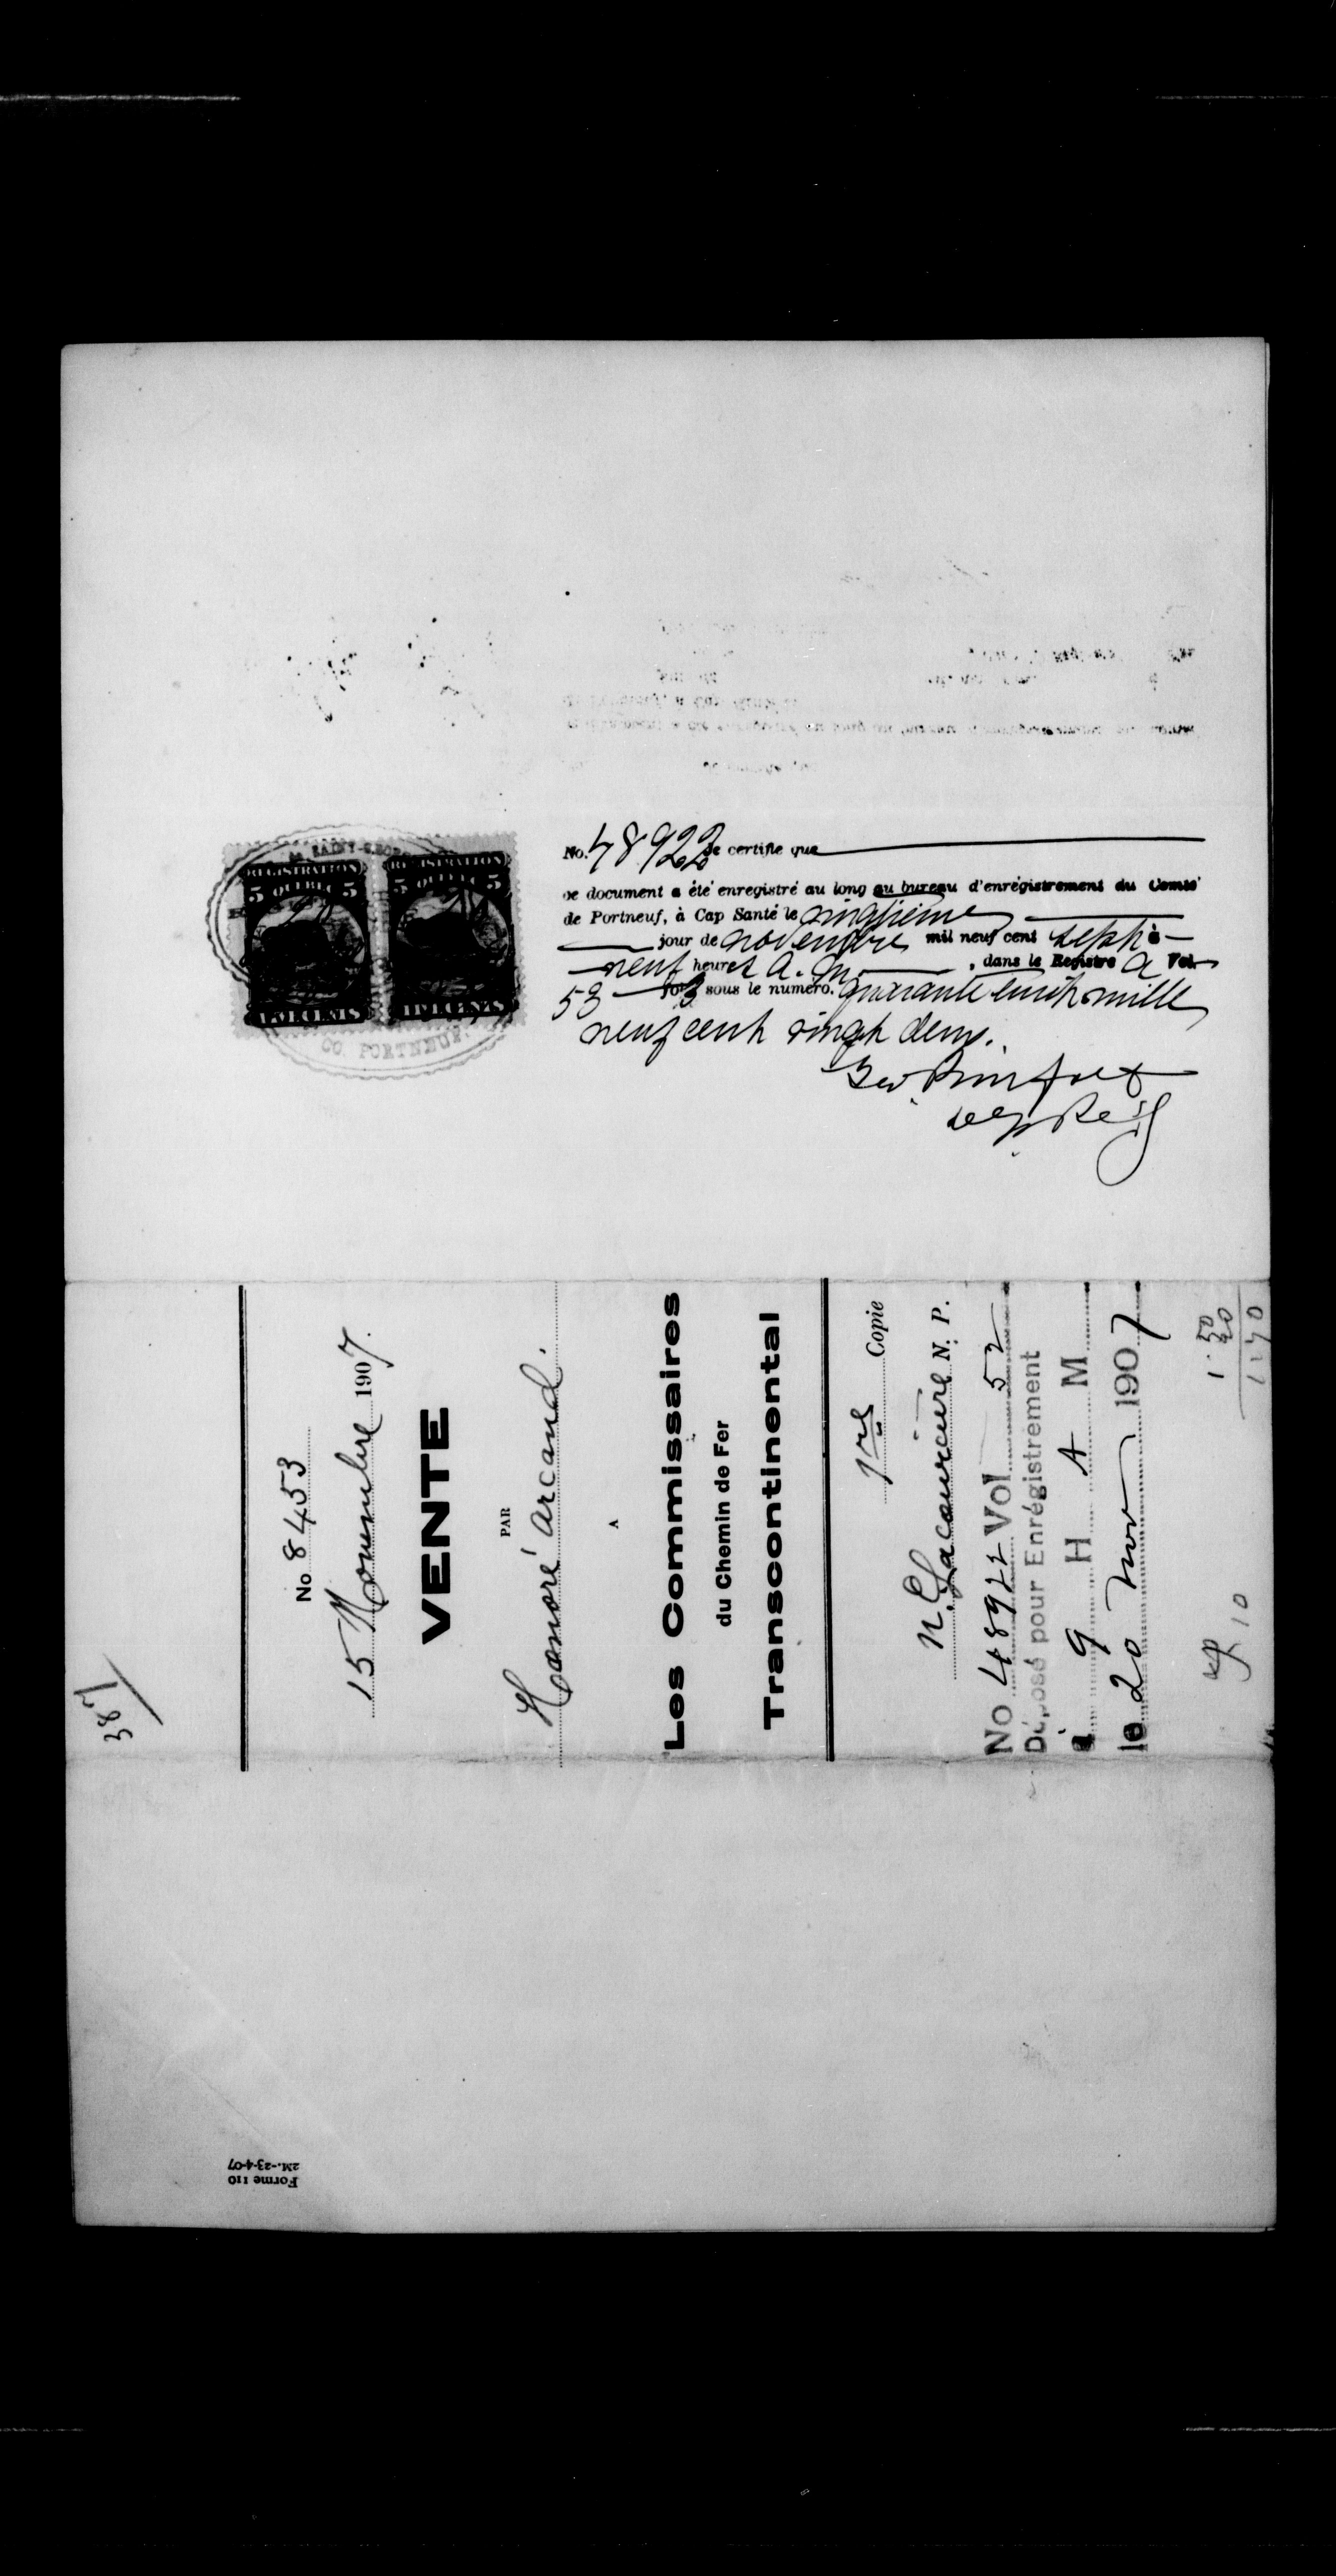 No. 48922 Je certifie que
ce document a été enregistré au long au bureau d'enrégistrement du Comté
de Portneuf, à Cap Santé le vingtième
jour de novembre mil neuf cent sept à
neuf heures A. M. , dans le Registre A Vol.
53 fol 3 sous le numéro. quarante huit mille
neuf cent vingt deux.
Dep Reg
REGISTRATION
5 QUEBEC 5
FIVE CENTS
REGISTRATION
5 QUEBEC 5
FIVE CENTS
CO. PORTNEUF.
387
No 8453
15 Novembre 1907.
VENTE
PAR
Honoré Arcand.
A
Les Commissaires
du Chemin de Fer
Transcontinental
1re Copie
N. Lacourcière N. P.
No 48922 Vol 52
Déposé pour Enrégistrement
à 9 H A M
le 20 nov 1907
1.50
20
1.70
10
Forme 110
2M.-23-4-07